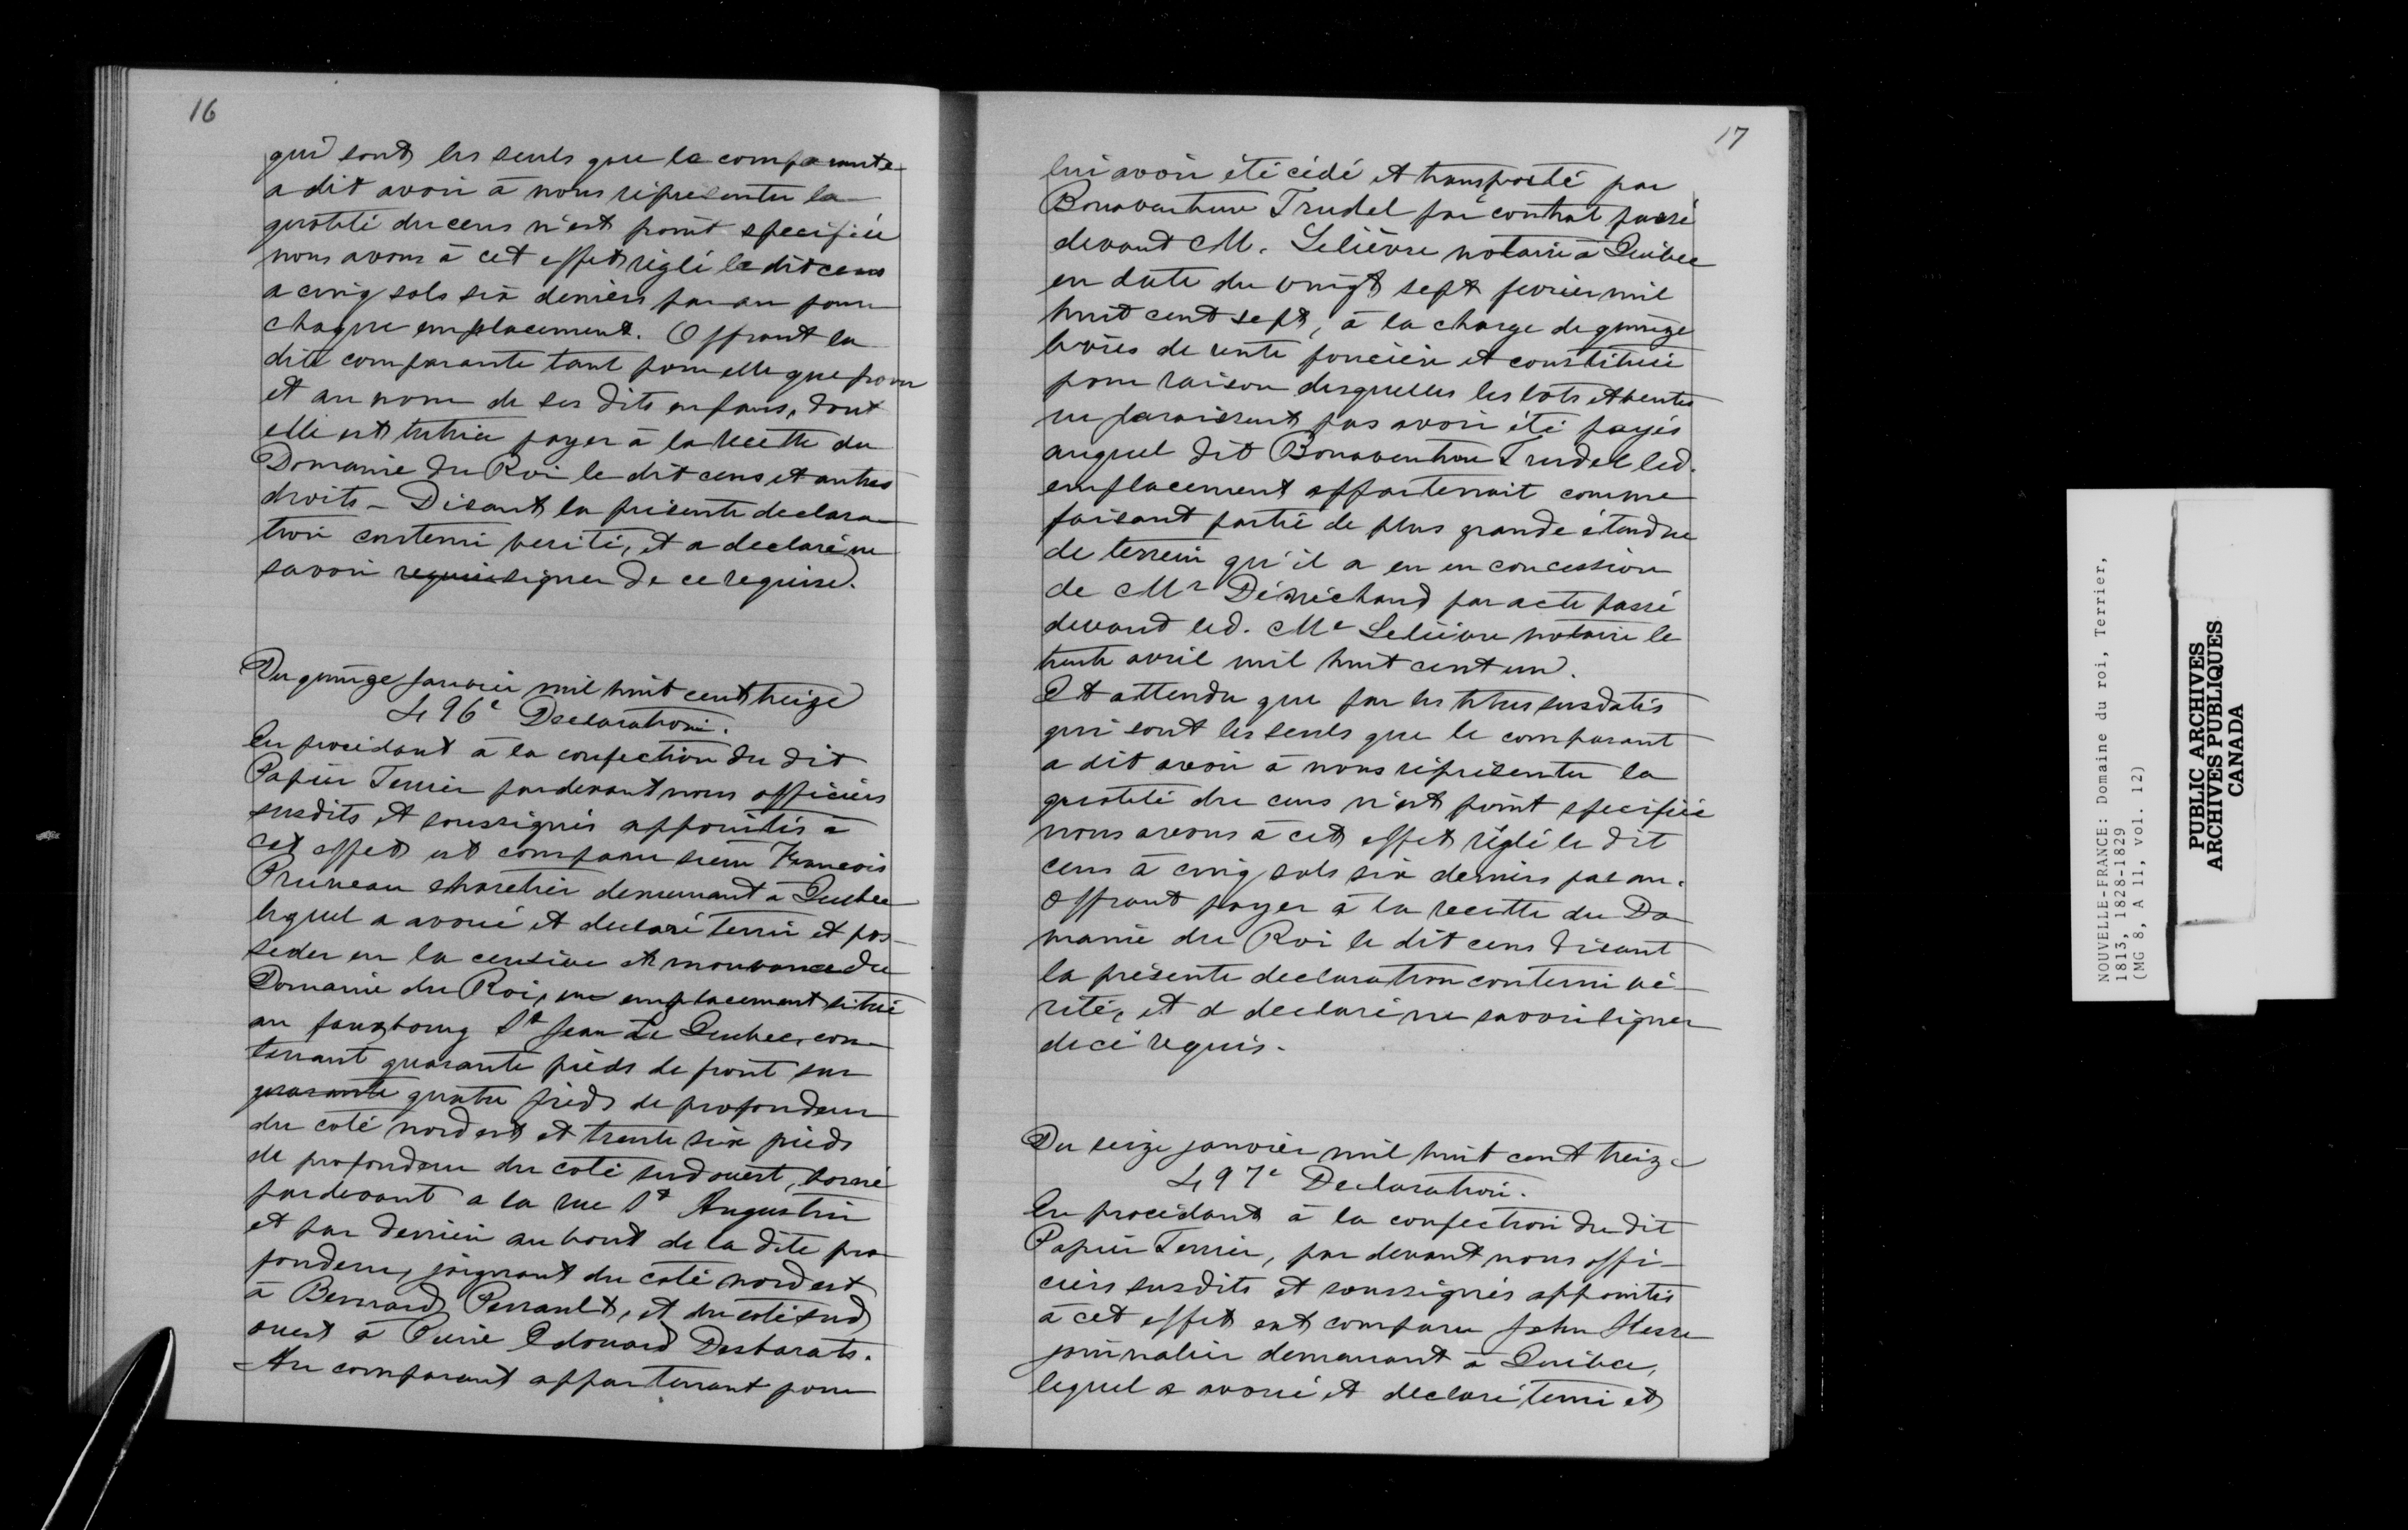 16
qui sont les seuls que la comparante
a dit avoir à nous représenter la
quotité du cens n'est point specifiée
nous avons à cet effet réglé le dit cens
a cinq sols six deniers par an pour
chaque emplacement. Offrant la
dite comparante tant pour elle que pour
et au nom de ses dits enfans, dont
elle est tutrice payer à la recette du
Domaine du Roi le dit cens et autres
droits – Disant la présente declara-
tion contenir verité, et a declaré ne
savoir requise signer de ce requise.
Du quinze janvier mil huit cent treize
496e Declaration.
En procédant à la confection du dit
Papier Terrier pardevant nous officiers
susdits et soussignés appointés à
cet effet est comparu sieur Francois
Pruneau charetier demeurant à Quebec
lequel a avoué et declaré tenir et pos-
seder en la censive et mouvance du
Domaine du Roi, un emplacement situé
au fauxbourg St Jean de Quebec, con-
tenant quarante pieds de front sur
quarante quatre pieds de profondeur
du coté nord est et trente six pieds
de profondeur du coté sud ouest, borné
pardevant a la rue St Augustin
et par derrière au bout de la dite pro-
fondeur, joignant du coté nord est
à Bernard Perrault, et du coté sud
ouest à Pierre Edouard Desbarats.
Au comparant appartenant pour
17
lui avoir été cédé et transporté par
Bonaventure Trudel par contrat passé
devant M. Lelièvre notaire à Québec
en date du vingt sept fevrier mil
huit cent sept, à la charge de quinze
livres de rente foncière et constituée
pour raison desquelles les lots et ventes
ne paraissent pas avoir été payés
auquel dit Bonaventure Trudel led.
emplacement appartenait comme
faisant partie de plus grande étendue
de terrein qu'il a eu en concession
de Mr Dénéchaud par acte passé
devant led. Me Lelièvre notaire le
trente avril mil huit cent un.
Et attendu que par les titres susdatés
qui sont les seuls que le comparant
a dit avoir à nous représenter la
quotité du cens n'est point specifiée
nous avons à cet effet réglé le dit
cens à cinq sols six deniers par an.
Offrant payer à la recette du Do-
maine du Roi le dit cens disant
la présente declaration contenir vé-
rité, et a declaré ne savoir signer
de ce requis.
Du seize janvier mil huit cent treize
497e Declaration.
En procédant à la confection du dit
Papier Terrier, par devant nous offi-
ciers susdits et soussignés appointés
à cet effet est comparu John Hesse
journalier demeurant à Québec,
lequel a avoué et declaré tenir et
NOUVELLE-FRANCE: Domaine du roi, Terrier,
1813, 1828-1829
(MG 8, A 11, vol. 12)
PUBLIC ARCHIVES
ARCHIVES PUBLIQUES
CANADA